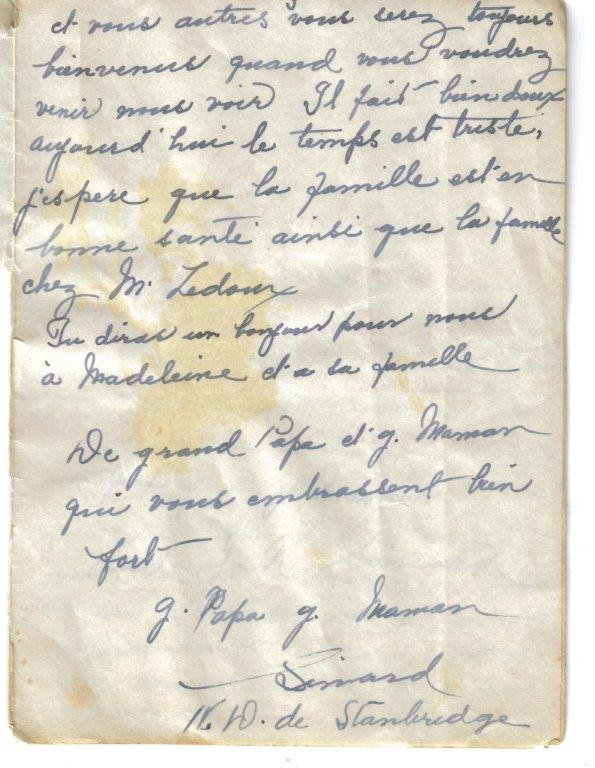 et vous autres vous serez toujours
bienvenus quand vous voudrez
venir nous voir Il fait bien doux
aujourd'hui le temps est triste,
j'espere que la famille est en
bonne santé ainsi que la famille
chez M. Ledoux
Tu diras un bonjour pour nous
à Madeleine et a sa famille
De grand Papa et g. Maman
qui vous embrassent bien
fort
g. Papa g. Maman
Simard
N. D. de Stanbridge